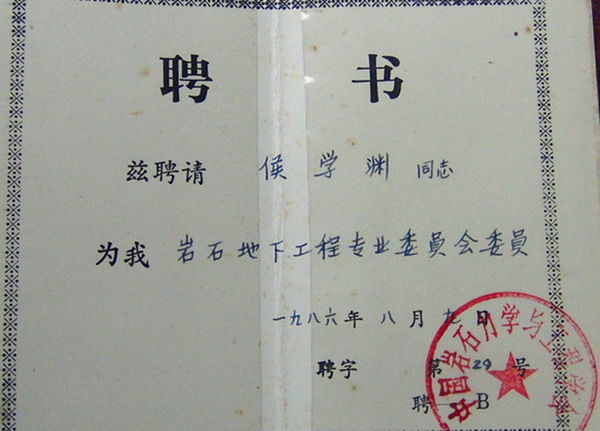 聘 书
兹聘请 侯学渊 同志
为我 岩石地下工程专业委员会委员
一九八六年 八月九日
聘字 第 29 号
聘 B
中国岩石力学与工程学会